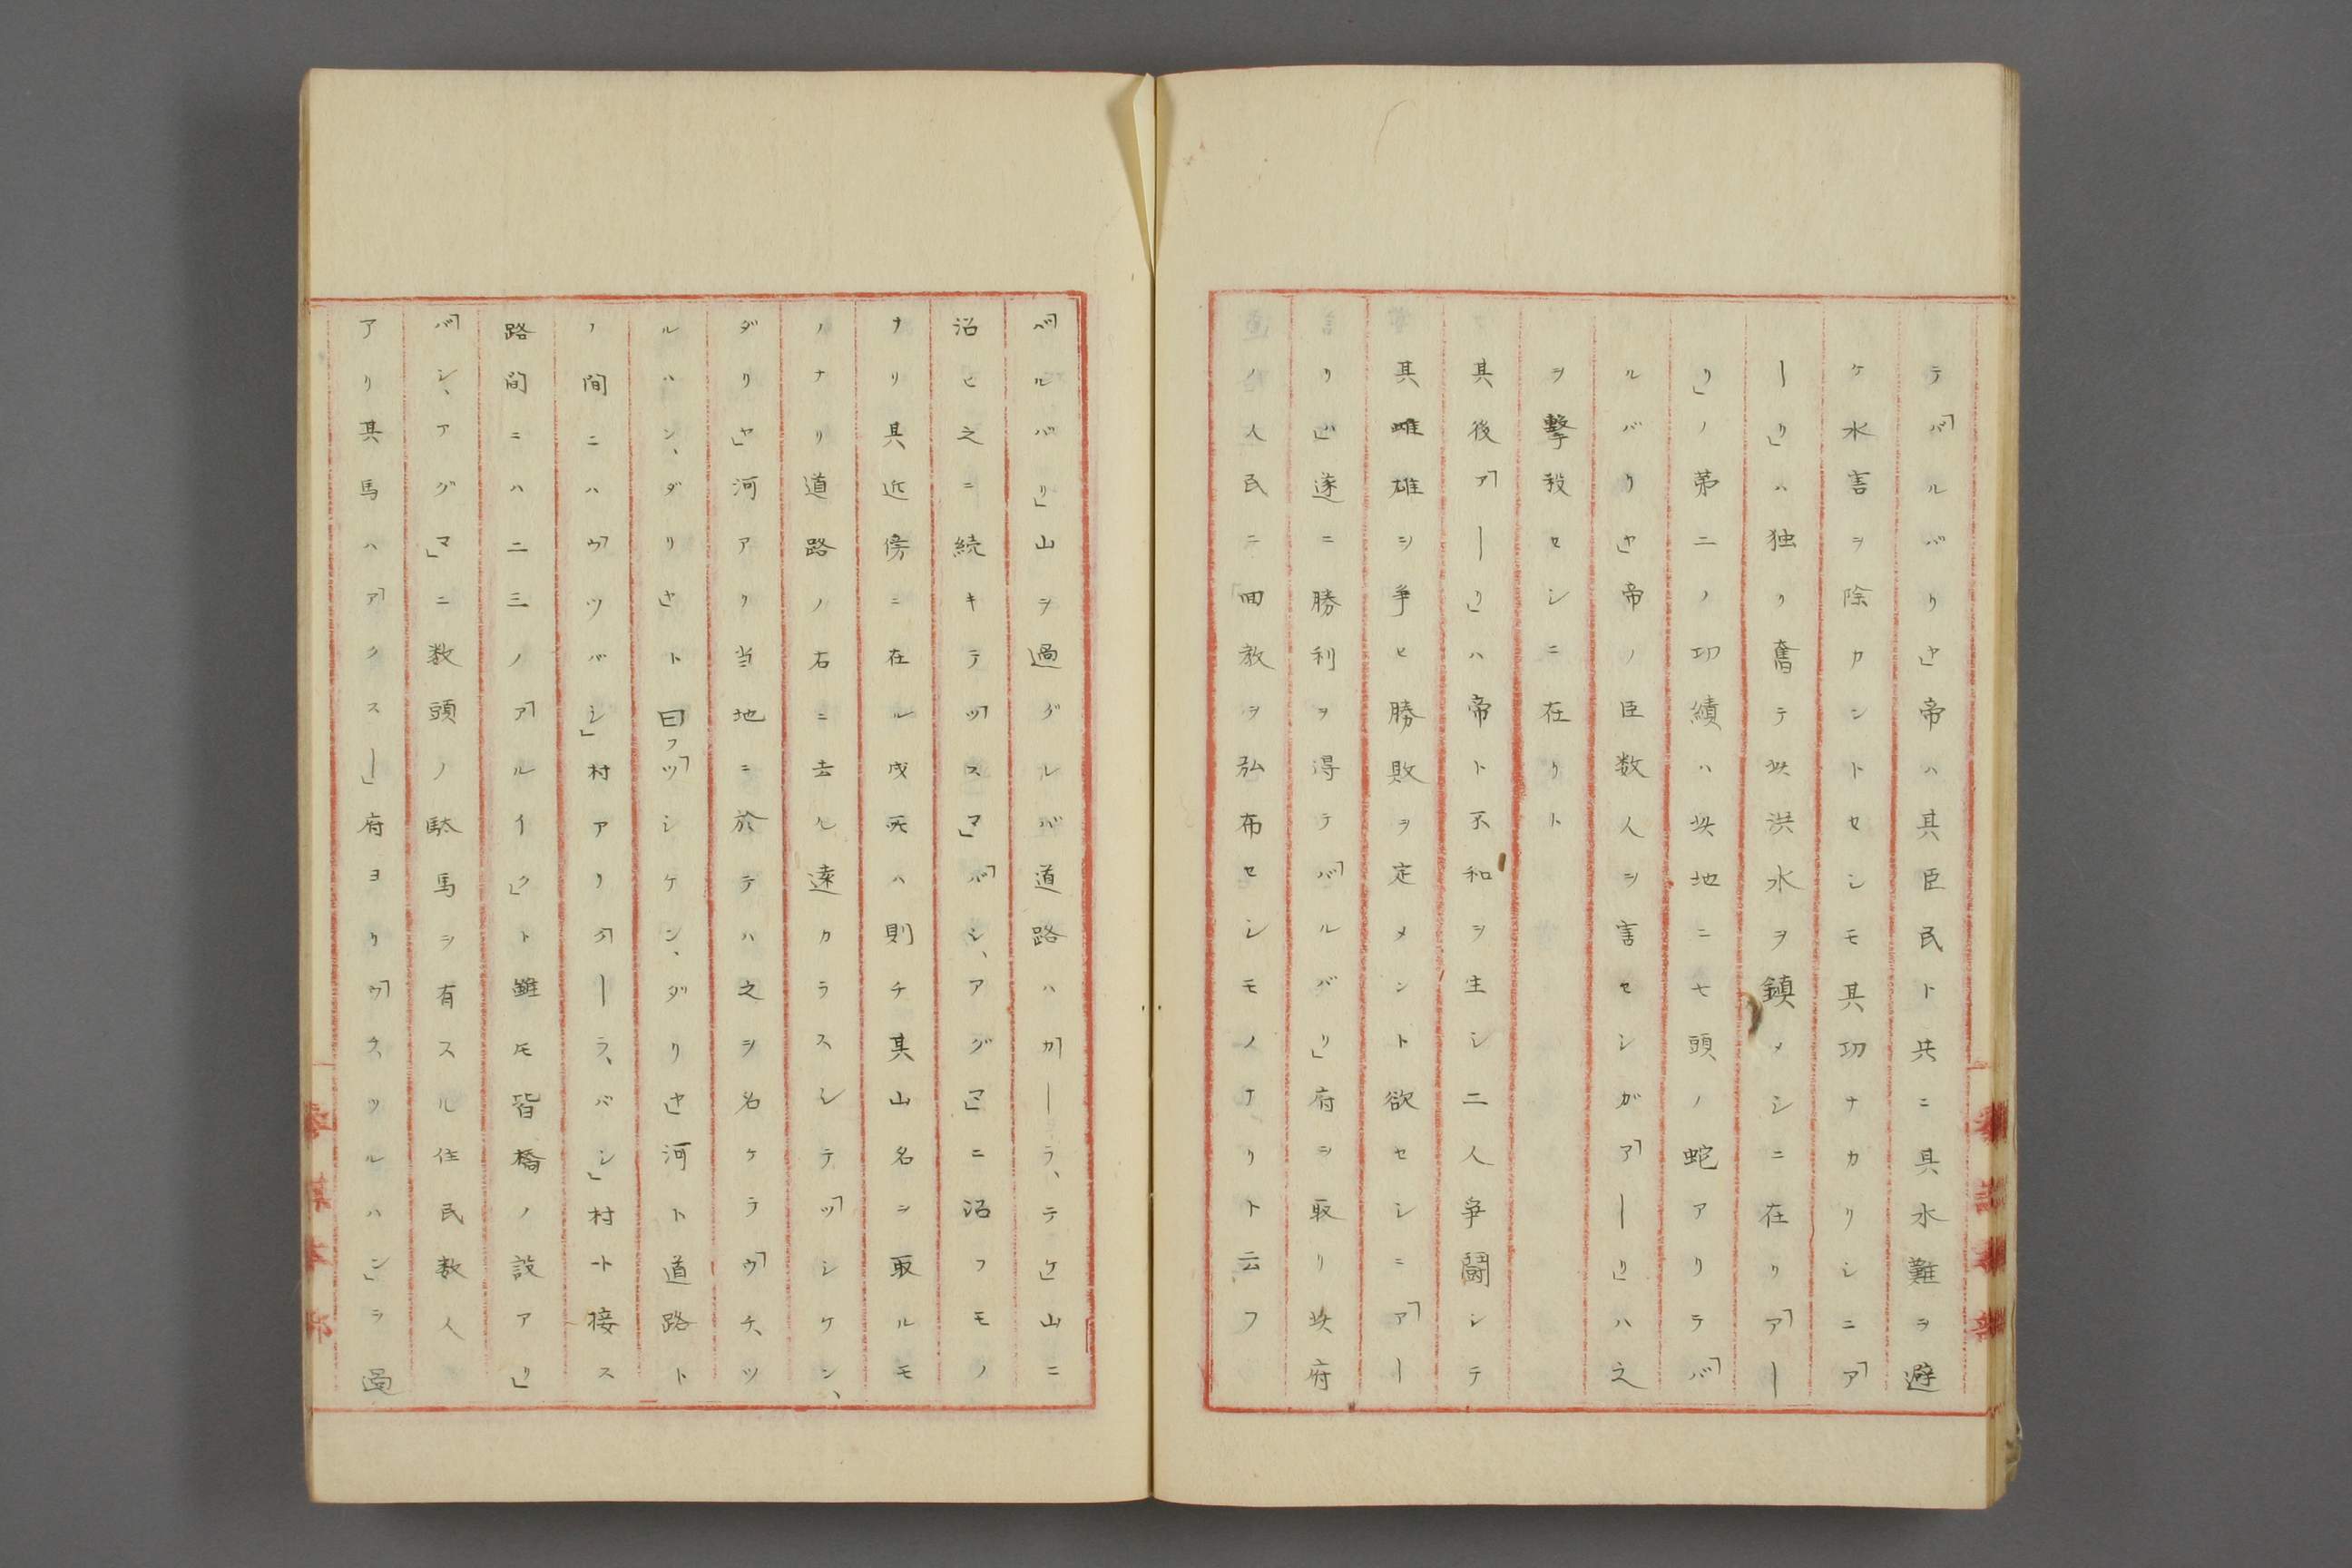 テ「バルバリヤ」帝ハ其臣民ト共ニ其水難ヲ避
ケ水害ヲ除カントセシモ其功ナカリシニ「ア
ーリ」ハ独リ奮テ此洪水ヲ鎮メシニ在リ「アー
リ」ノ第二ノ功績ハ此地ニ七頭ノ蛇アリテ「バ
ルバリヤ」帝ノ臣数人ヲ害セシガ「アーリ」ハ之
ヲ撃殺セシニ在リト
其後「アーリ」ハ帝ト不和ヲ生シ二人争闘シテ
其雌雄ヲ争ヒ勝敗ヲ定メント欲セシニ「アー
リ」遂ニ勝利ヲ得テ「バルバリ」府ヲ取リ此府
ノ人民ニ「回教ヲ弘布セシモノナリト云フ
「バルバリ」山ヲ過グレバ道路ハ「カーラ、テケ」山ニ
沿ヒ之ニ続キテ「ツスマ」「バシ、アグマ」ニ沿フモノ
ナリ其近傍ニ在ル戍兵ハ則チ其山名ヲ取ルモ
ノナリ道路ノ右ニ去ル遠カラスシテ「ツシケン、
ダリヤ」河アリ当地ニ於テハ之ヲ名ケテ「ウチ、ツ
ルハン、ダリヤ」ト曰フ「ツシケン、ダリヤ」河ト道路ト
ノ間ニハ「ウツバシ」村アリ「クーラ、バシ」村ト接ス
路間ニハ二三ノ「アルイク」ト雖モ皆橋ノ設アリ」
「バシ、アグマ」ニ数頭ノ駄馬ヲ有スル住民数人
アリ其馬ハ「アクスー」府ヨリ「ウチ、ツルハン」ヲ過